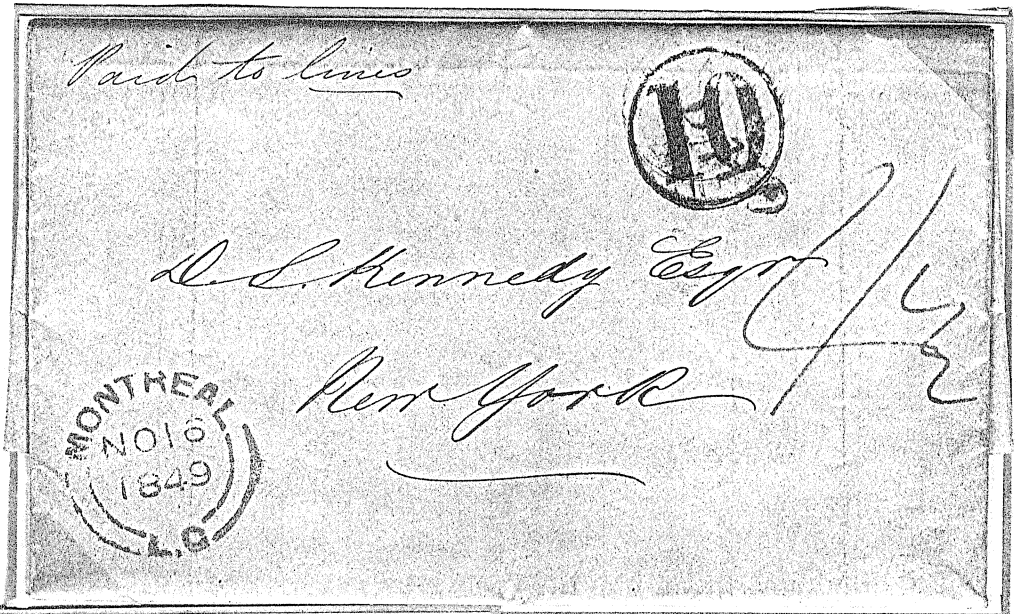 Paid to lines
10
D. S. Kennedy Esqr
4 1/2
New York
MONTREAL
NO 16
1849
L.C